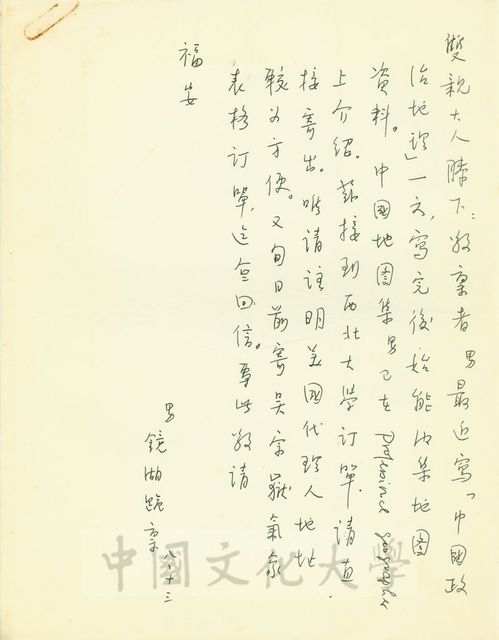 雙親大人膝下：敬稟者 男最近寫「中國政
治地理」一文，寫完後始能收集地圖
資料。中國地圖集男已在Professional Geographer
上介紹。茲接到西北大學訂單，請直
接寄出。唯請註明美國代理人地址
較為方便。又旬日前寄吳宗嶽氣象
表格訂單，迄無回信。專此敬請
福安
男 鏡湖跪稟 八、十三
中國文化大學